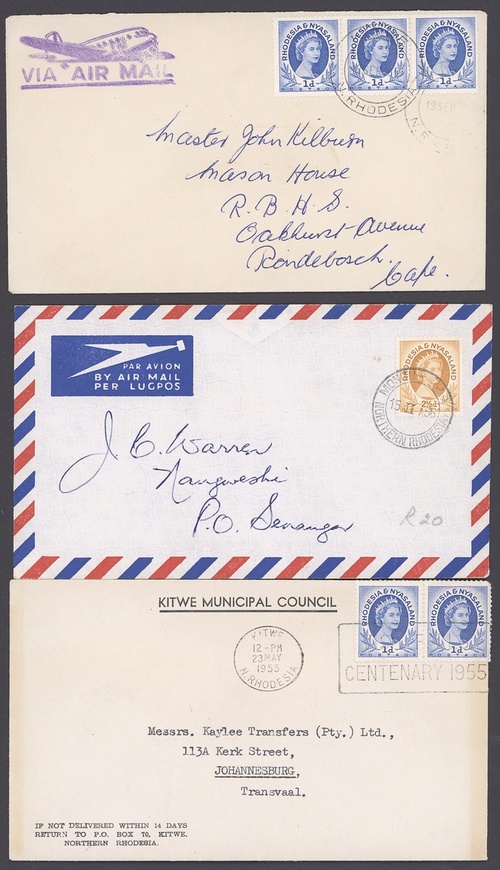 VIA AIR MAIL
RHODESIA & NYASALAND
1d
POSTAGE
RHODESIA & NYASALAND
1d
POSTAGE
RHODESIA & NYASALAND
1d
POSTAGE
N. RHODESIA
Master John Kilburn
Mason House
R.B.H.S.
Oakhurst Avenue
Rondebosch.
Cape.
PAR AVION
BY AIR MAIL
PER LUGPOS
RHODESIA & NYASALAND
2½d
NORTHERN RHODESIA
J C. Warren
Nangweshi
P.O. Senanga
R20
KITWE MUNICIPAL COUNCIL
RHODESIA & NYASALAND
1d
RHODESIA & NYASALAND
1d
KITWE
12-PM
23 MAY
1955
N. RHODESIA
CENTENARY 1955
Messrs. Kaylee Transfers (Pty.) Ltd.,
113A Kerk Street,
JOHANNESBURG,
Transvaal.
IF NOT DELIVERED WITHIN 14 DAYS
RETURN TO P.O. BOX 70, KITWE,
NORTHERN RHODESIA.